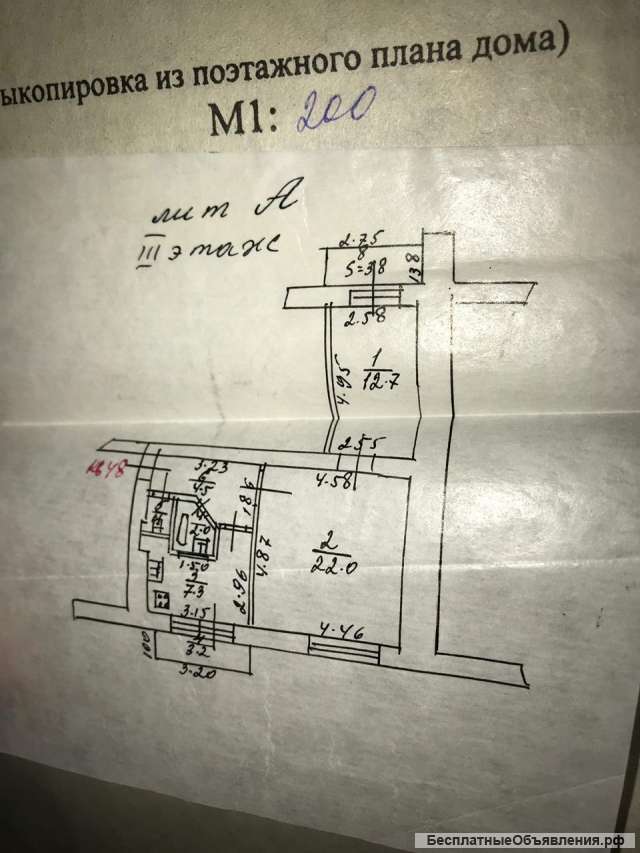 ыкопировка из поэтажного плана дома)
М1: 200
лит А
III этаж
2.75
8
S=3.8
1.38
2.58
1
12.7
4.95
2.55
4.58
кв 48
3.23
6
4.5
1.85
2.0
1.50
3
7.3
2.96
4.87
2
22.0
3.15
4.46
100
3.2
3.20
БесплатныеОбъявления.рф